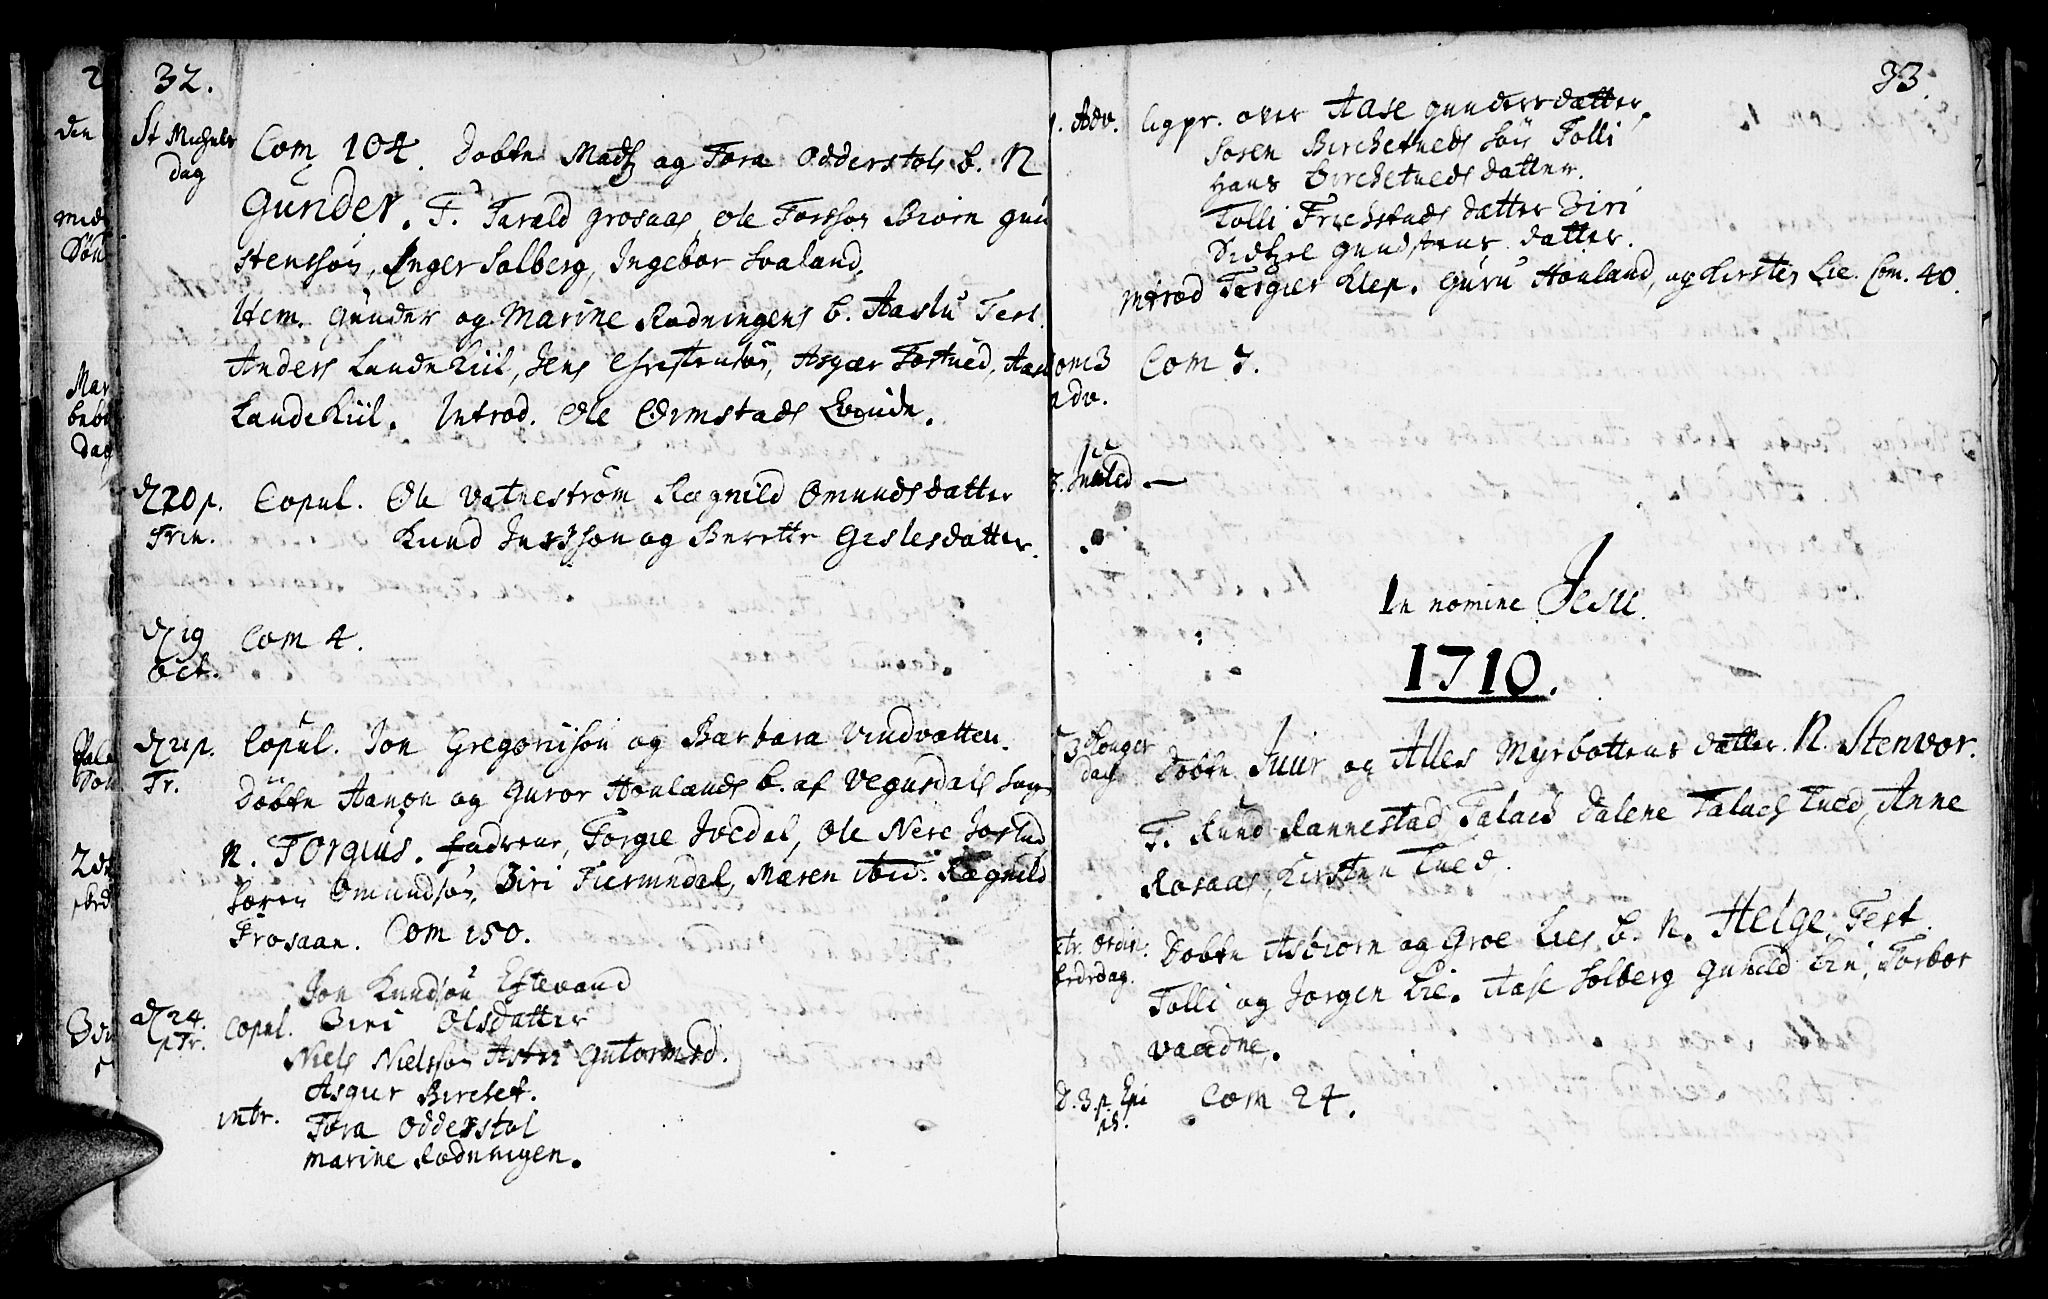 32.
St Michels dag
Com 104. Døbte Mads og Tora Odderstøls b. N
Gunder. F. Tarald grosaas, Ole Torsson Biørn gun
stensson, Inger Solberg, Ingebor Svaland,
Item. Gunder og Marine Rødningens b. Aaslu Test.
Anders LandeKiil, Jens Christensøn, Asgier Tostued,
LandeKiil. Introd. Ole Ormstads Qvinde.
D 20 p. Trin.
Copul. Ole Vatneström Ragnild Omundsdatter
Knud Jensson og Berette Gislesdatter.
D 19 Oct.
Com 4.
D 21 p. Tr.
Copul. Jon Gregoriisøn og Barbara Vindvatten.
Døbte Aanon og Guror Honlands b. af Vegusdals Sogn
N. Torgius. fadrene, Torgie Ivedal, Ole Nere
Søren Omundsøn, Biri Tiermedal, Maren ibid. Ragnild
Frosaan. Com 150.
Jon Knudsøn Estevand
D 24 p Tr.
Copul. Biri Olsdatter
Niels Nielsson Astri Gutormsd.
Asgier Birchet.
intr. Tora Odderstøl
Marine Rødningen.
33.
1. Adv.
ligpr. over Aase gundersdatter,
Soren Birchetueds Søn Tolli
Hans Birchetueds datter.
Tolli Frichstads datter Biri
gundstens datter.
Introd Torgier Klep. Guru Honland, og Kirsten Lie. Com. 40.
om 3 Adv.
Com 7.
3. Juled —
In nomine Jesu.
1710.
3 Konger dag
Døbte Juur og Alles Myrbottens datter. N. Stenvor.
F. Knud Rannestad, Talach Dalene Talach Tued, Anne
Rosaas, Kirsten Tued.
Døbte Asbiorn og Groe Lies b. N. Helge. Test.
Tolli og Jorgen Lie. Aase Solberg Gunild Lie, Torbor
vaadne.
D. 3. p. Epi
Com 24.